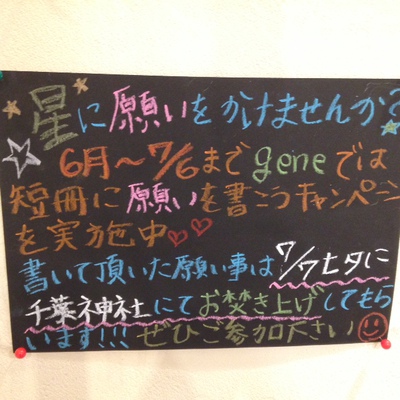 星に願いをかけませんか?
6月～7/6までgeneでは
短冊に願いを書こうキャンペーン
を実施中
書いて頂いた願い事は7/7七夕に
千葉神社にてお焚き上げしてもら
います!!!ぜひご参加下さい